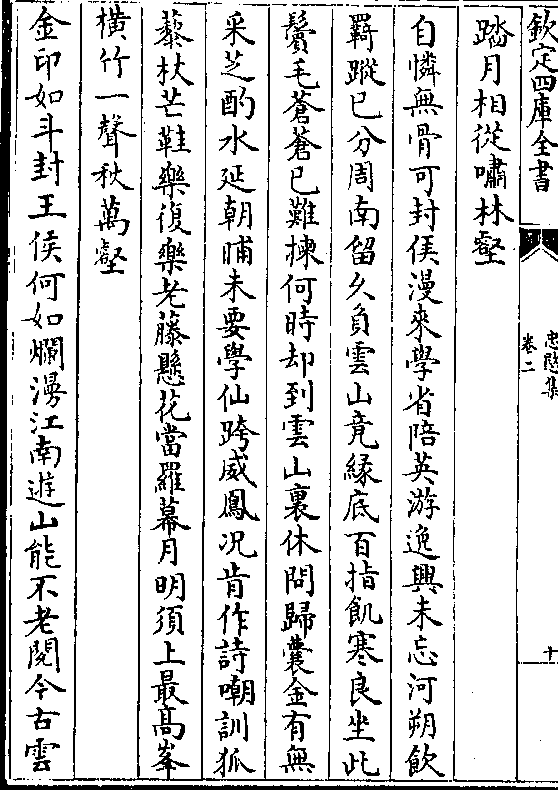 欽定四庫全書
忠愍集
卷二
十
踏月相從嘯林壑
自憐無骨可封侯漫來學省陪英游逸興未忘河朔飲
羇蹤已分周南留久負雲山竟緣底百指飢寒良坐此
鬢毛蒼蒼已難揀何時却到雲山裏休問歸囊金有無
采芝酌水延朝晡未要學仙跨威鳳况肯作詩嘲訓狐
藜杖芒鞋樂復樂老藤懸花當羅幕月明須上最高峯
橫竹一聲秋萬壑
金印如斗封王侯何如爛漫江南遊山能不老閱今古雲